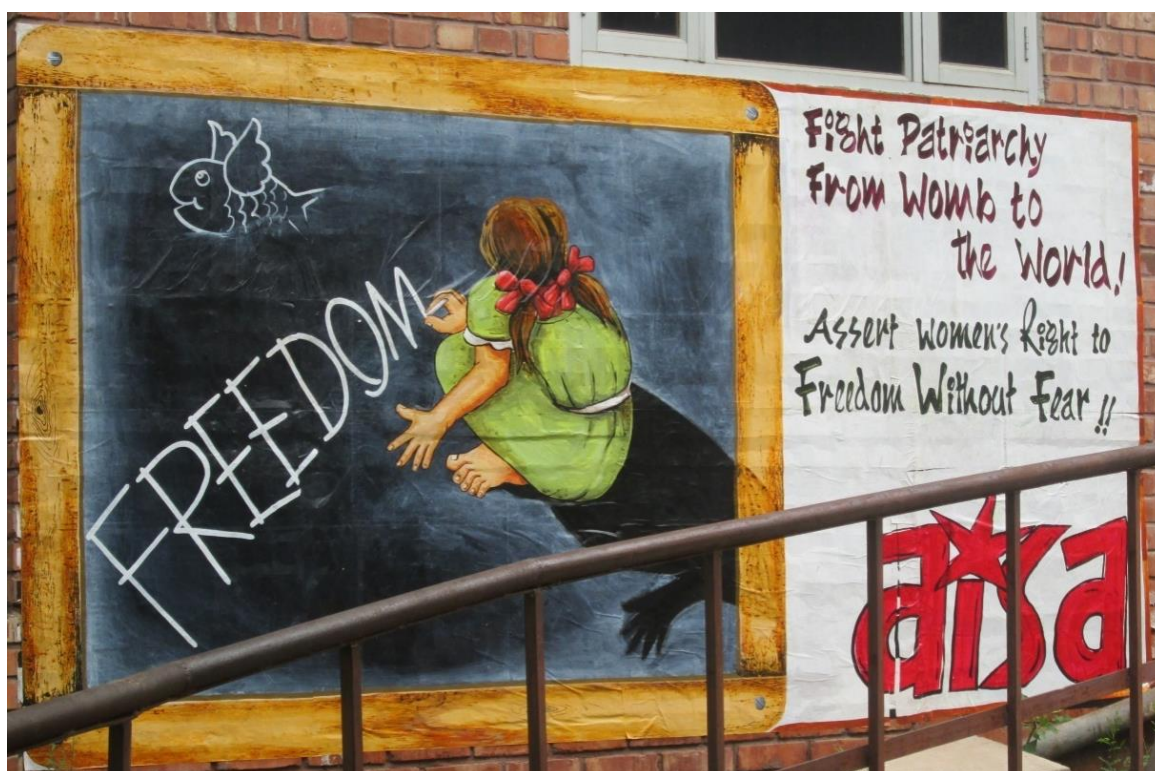 FREEDOM
Fight Patriarchy
From Womb to
the World!
Assert women's Right to
Freedom Without Fear !!
aisa